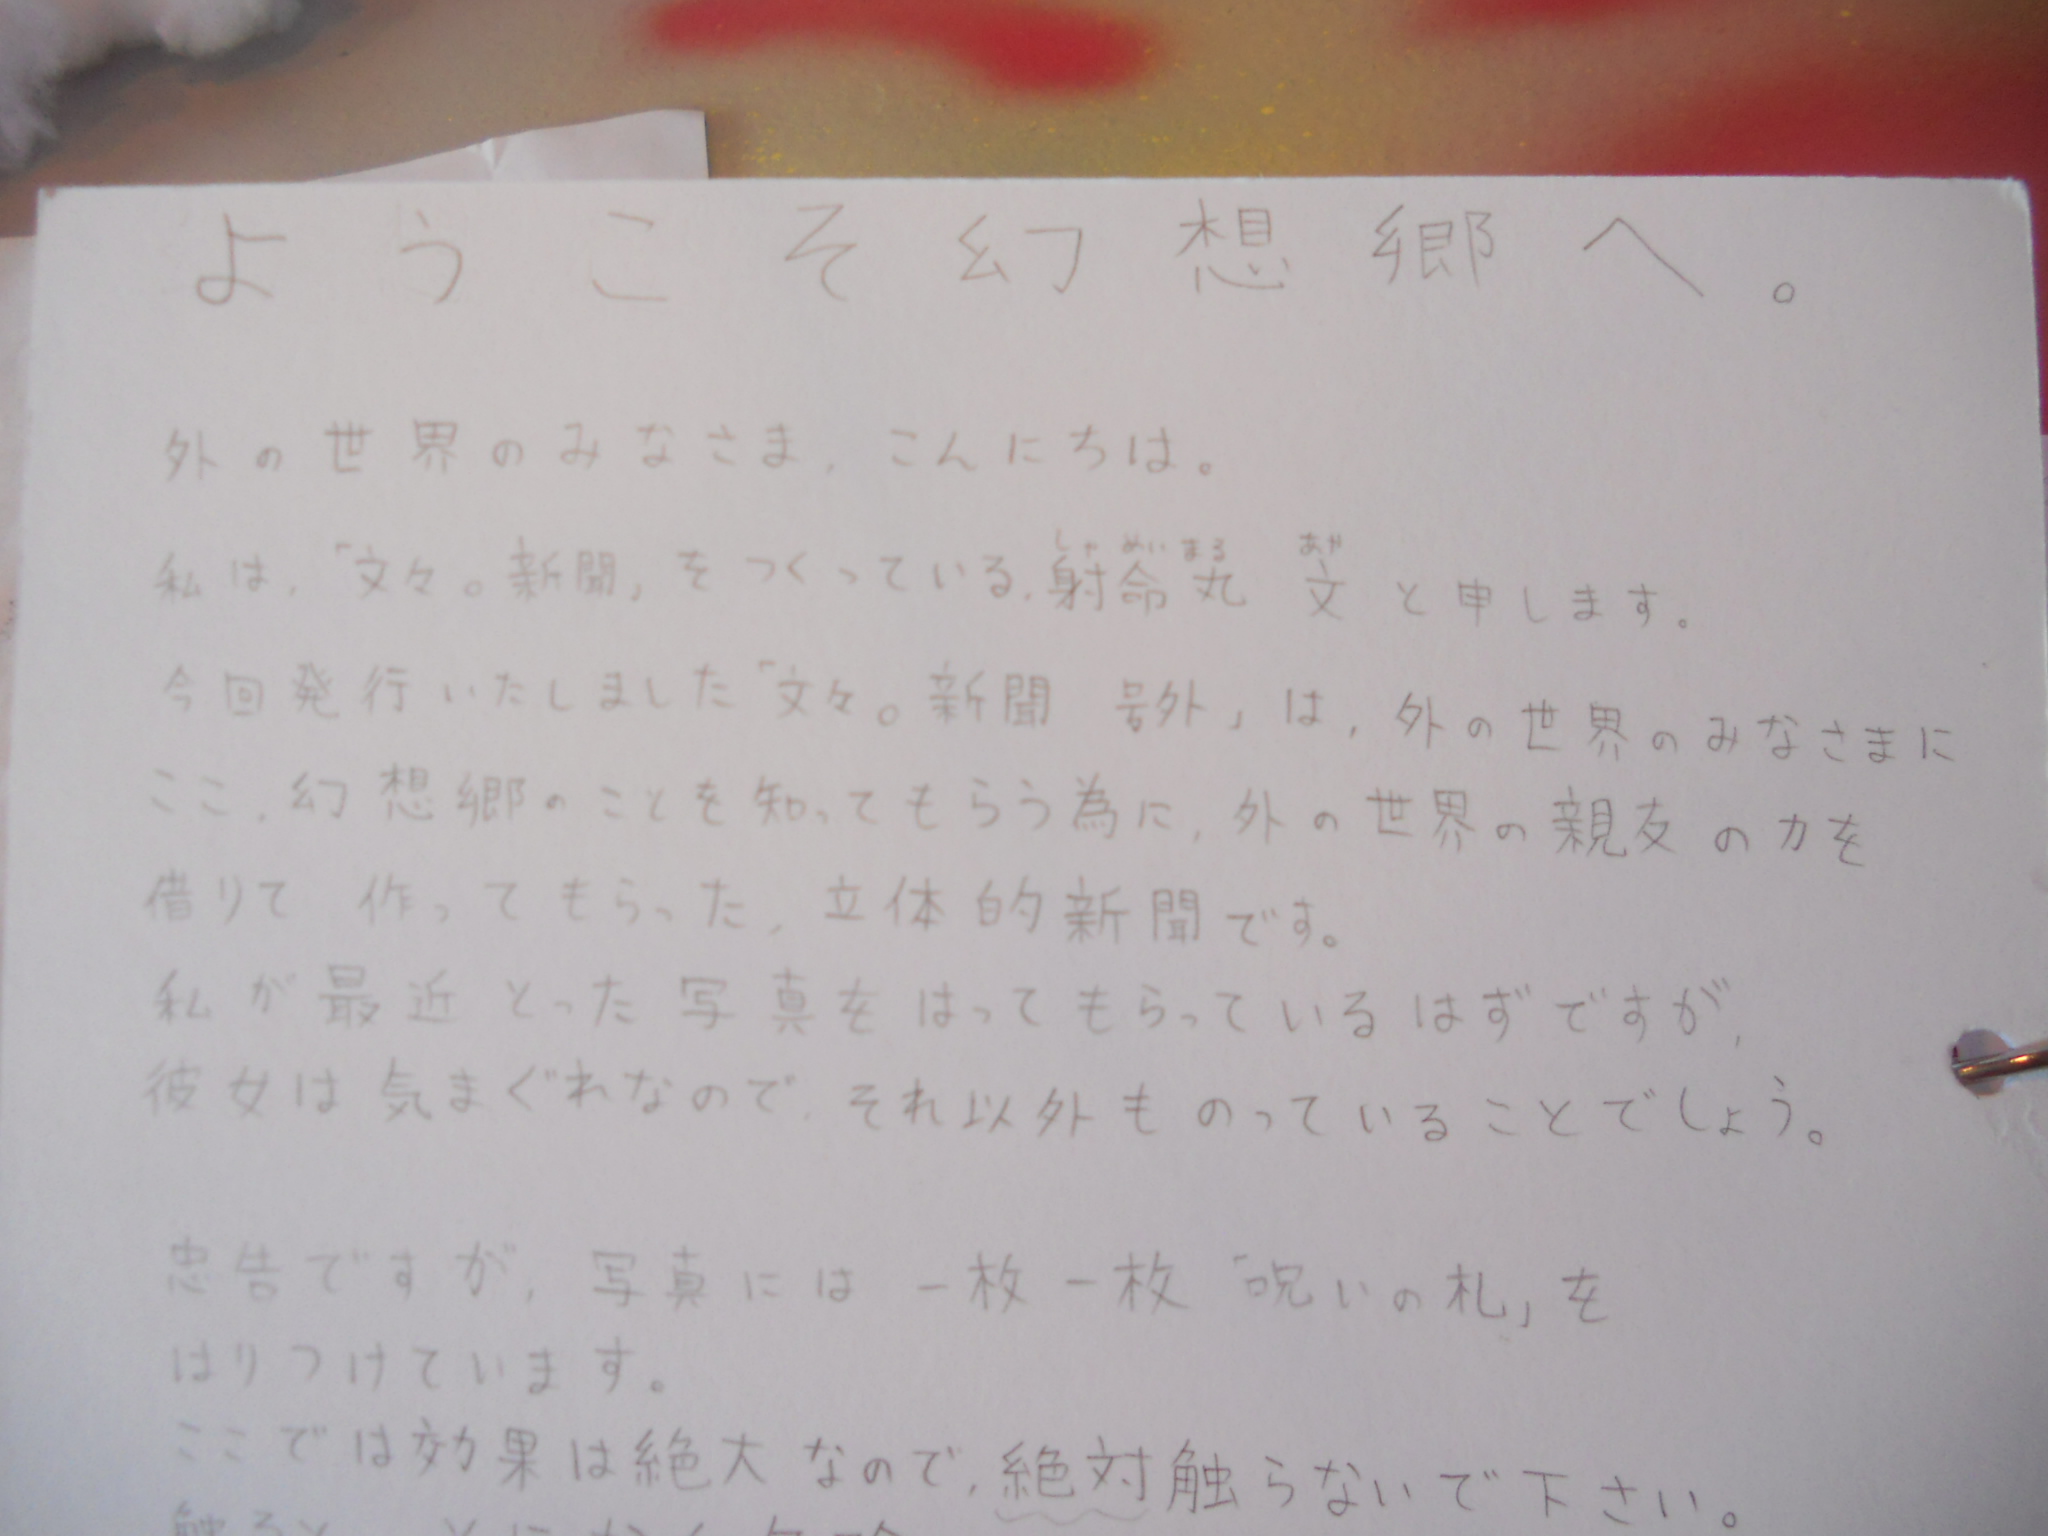 ようこそ幻想郷へ。
外の世界のみなさま、こんにちは。
私は、「文々。新聞」をつくっている、射命丸 文と申します。
しゃ めい まる あや
今回発行いたしました「文々。新聞 号外」は、外の世界のみなさまに
ここ、幻想郷のことを知ってもらう為に、外の世界の親友の力を
借りて 作ってもらった、立体的新聞です。
私が最近とった写真をはってもらっているはずですが、
彼女は気まぐれなので、それ以外ものっていることでしょう。
忠告ですが、写真には一枚一枚「呪いの札」を
はりつけています。
ここでは効果は絶大なので、絶対触らないで下さい。
触ると、とにかく